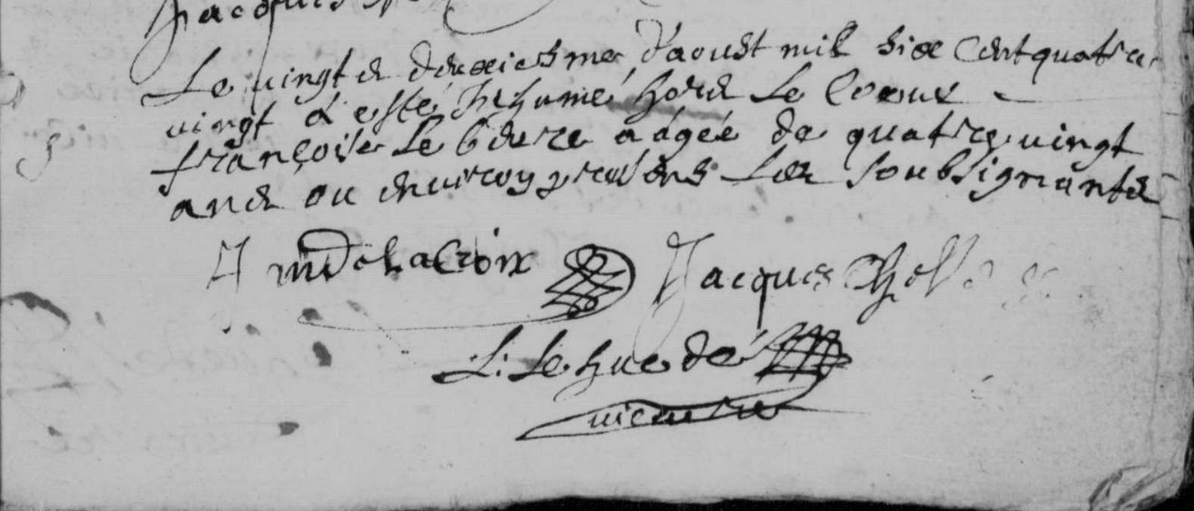 Jacques
Le vingt deuxiesme d'aoust mil six cent quatre
vingt a esté inhumé hors le coeur
françoise le aagée de quatre vingt
ans ou environ presens les soubsignants
Delacroix Jacques
L. Le huede
vicaire